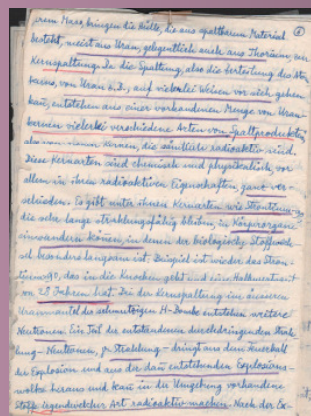 irem Maas, bringen die Hülle, die aus spaltbarem Material
besteht, meist aus Uran, gelegentlich auch aus Thorium, zur
Kernspaltung. Da die Spaltung, also die Zerteilung des Uran
kerns, von Uran z.B., auf vielerlei Weisen vor sich gehen
kann, entstehen aus einer vorhandenen Menge von Uran-
kernen vielerlei verschiedene Arten von Spaltprodukten,
also von neuen Kernen, die sämtliche radioaktiv sind.
Diese Kernarten sind chemisch und physikalisch, vor
allem in ihren radioaktiven Eigenschaften, ganz ver-
schieden. Es gibt unter ihnen Kernarten wie Strontium-90
die sehr lange strahlungsfähig bleiben, in Körperorgane
einwandern können, in denen der biologische Stoffwech-
sel besonders langsam ist. Beispiel ist wieder das Stron-
tium-90, das in die Knochen geht und eine Halbwertszeit
von 28 Jahren hat. Bei der Kernspaltung im äusseren
Uranmantel der sehrwertigen H-Bombe entstehen weitere
Neutronen. Ein Teil der entstandenen durchdringenden Strah-
lung - Neutronen, γ-Strahlung - dringt aus dem Feuerball
der Explosion und aus der dann entstehenden Explosions-
wolke heraus und kann in der Umgebung vorhandene
Stoffe irgendwelcher Art radioaktiv machen. Nach der Ex-